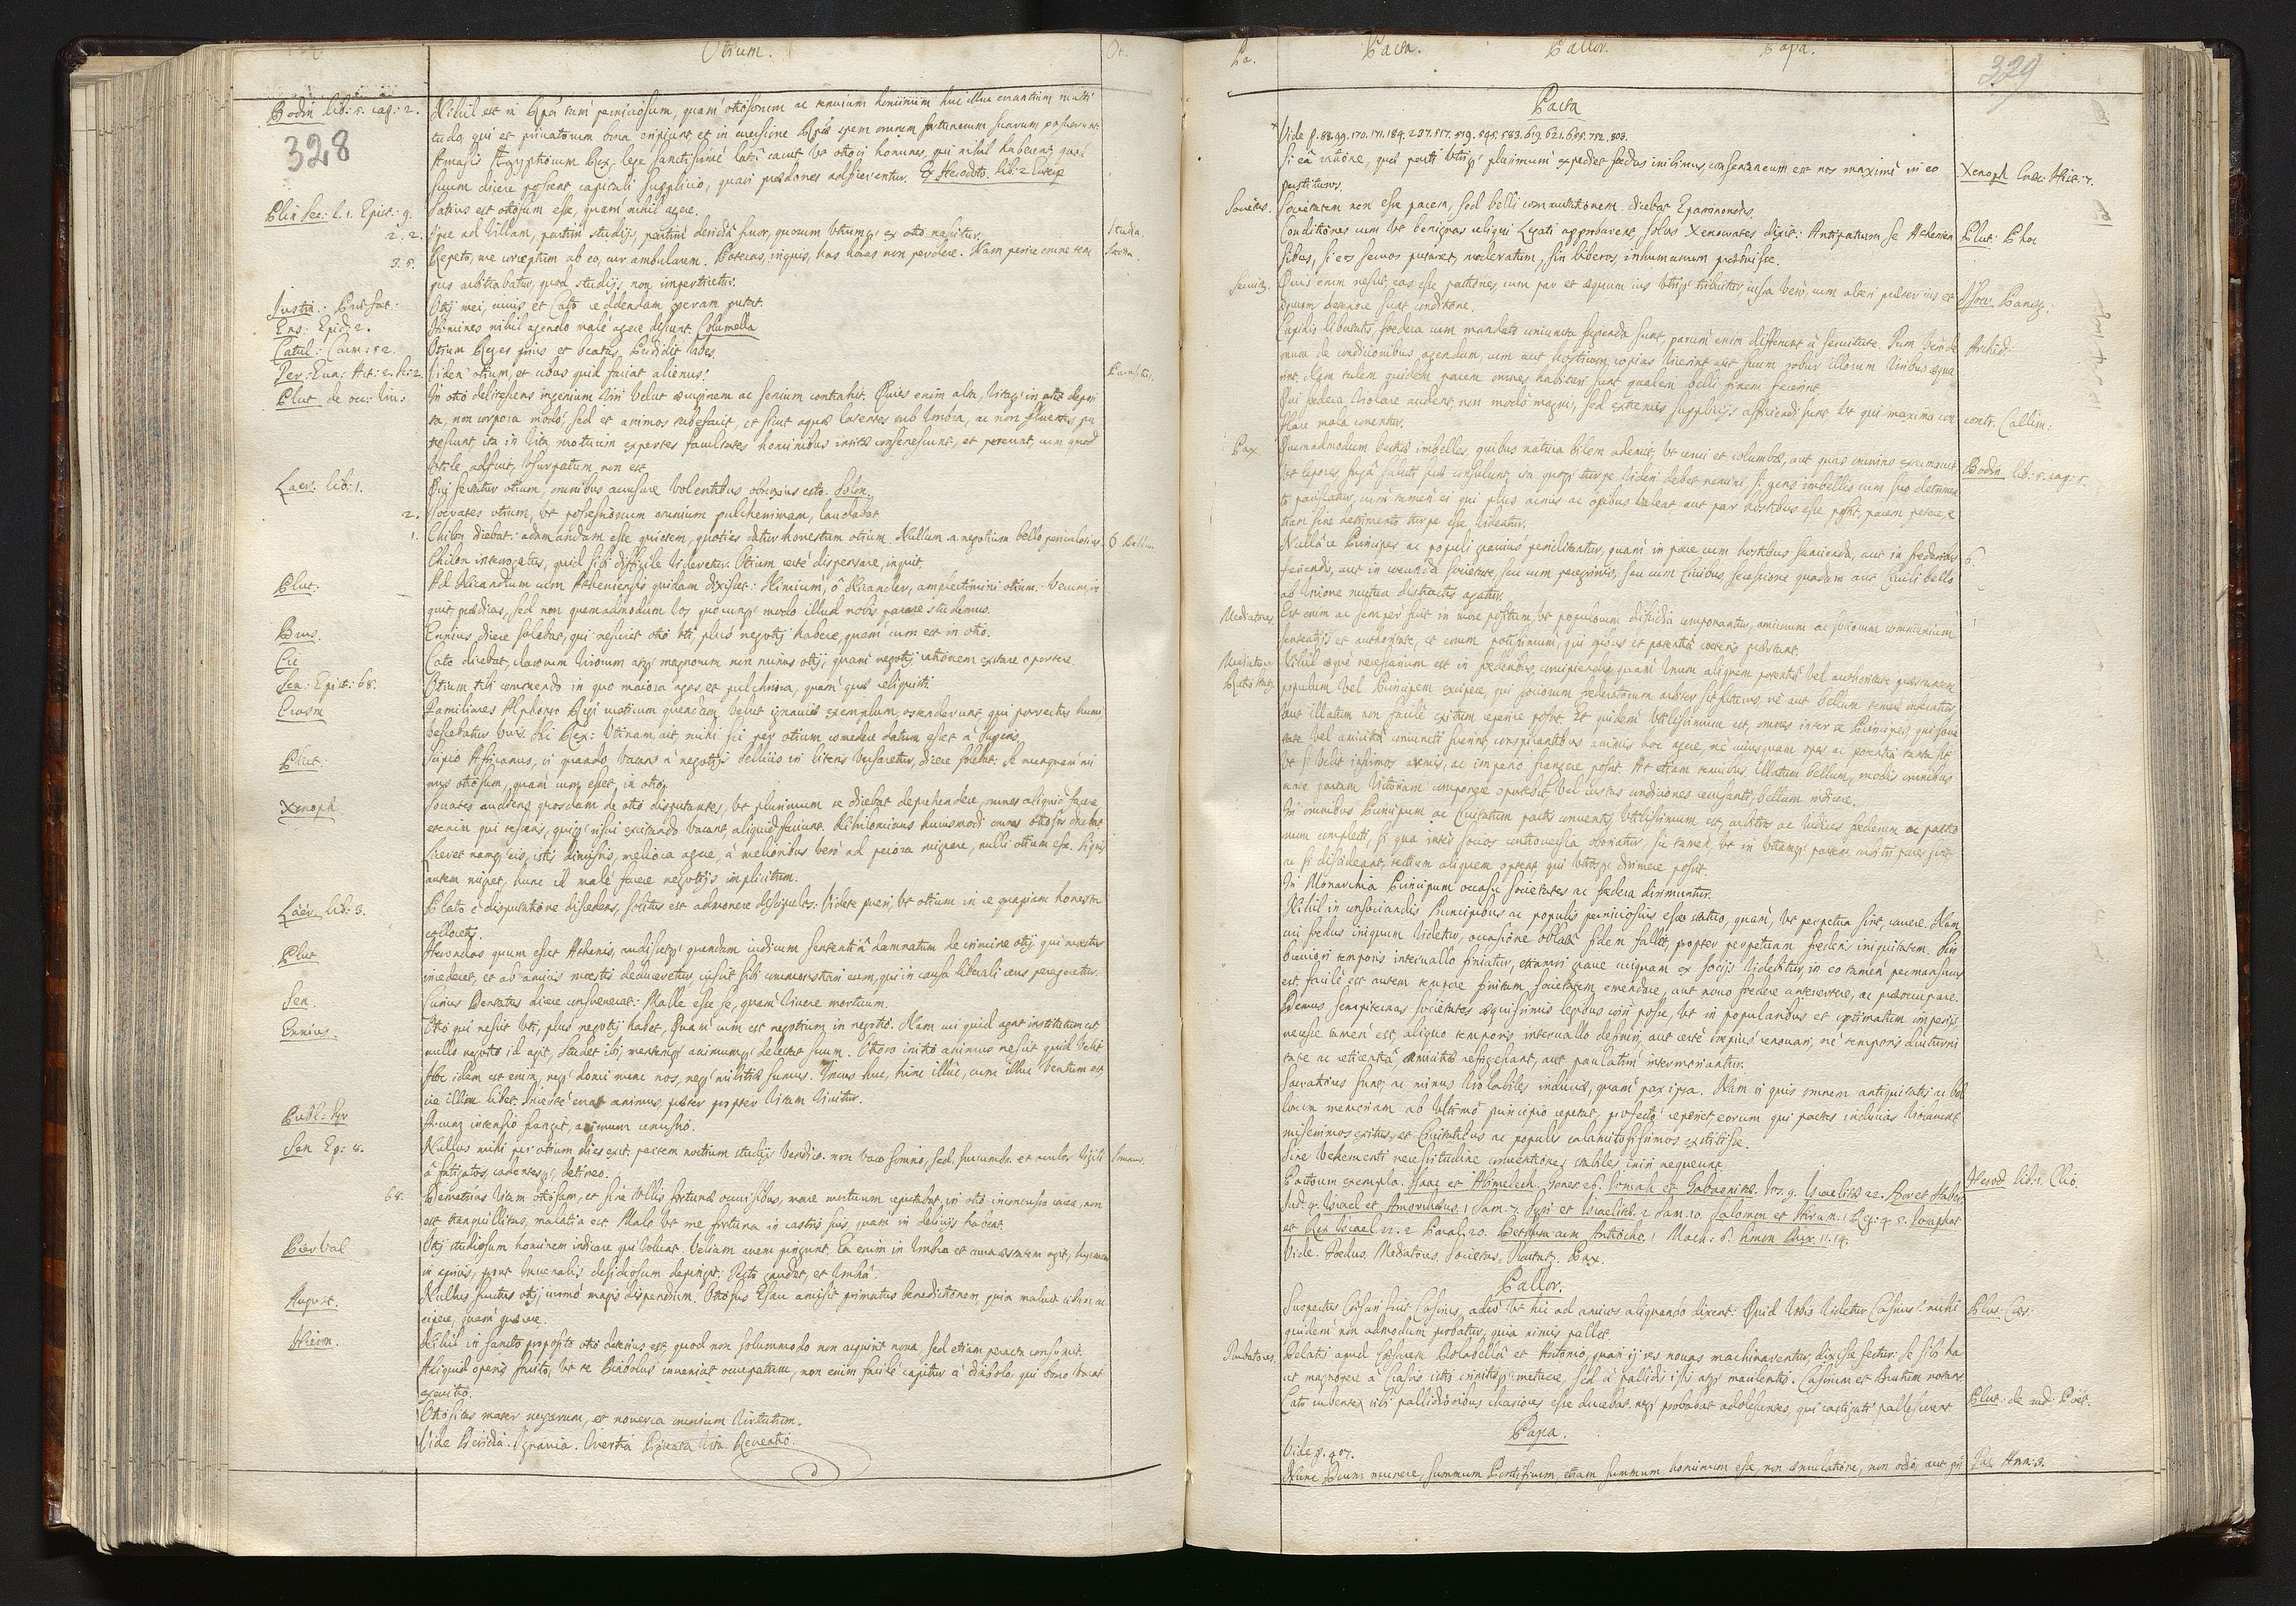 Otium.
Ot.
Bodin lib: 5. cap: 2.
Nihil est in Rep. tam perniciosum, quam otiosorum ac tenuium hominum huc illuc errantium multi
328
tudo, qui et privatorum bona eripiunt et in eversione Reip. spem omnem fortunarum suarum posuerunt.
Amasis Ægyptiorum Rex, lege sanctissimè latâ cavit ut otiosi homines, qui nihil haberent quod
suum dicere possent capitali supplicio, quasi prædones adficerentur. Ex Herodoto. lib: 2 Euterpe
Plin Sec: l. 1. Epist: 9.
Satius est otiosum esse, quam nihil agere.
2. 2.
Ipse ad Villam, partim studijs, partim desidiâ fruor, quorum utrumque ex otio nascitur.
Studia
3. 5.
Repeto, me correptum ab eo, cur ambularem. Poteras, inquit, has horas non perdere. Nam perire omne tem
pus arbitrabatur, quod studijs non impertiretur.
Justin: Præfat:
Otij mei, cuius et Cato reddendam operam putat.
Eras: Epid: 2.
Homines nihil agendo malè agere discunt. Columella
Catul: Carm: 52.
Otium Reges prius et beatas, Perdidit Urbes.
Ter: Eun: Act: 2. Sc: 2.
Viden otium, et cibus quid faciat alienus?
Parasitus.
Plut de occ: viv:
In otio delitescens ingenium Viri velut æruginem ac senium contrahit. Quies enim alta, Vitaque in otio deposi
ta, non corpora modò, sed et animos tabefacit, et sicut aquæ latentes sub umbra, ac non fluentes, pu
trescunt, ita in Vita motuum expertes facultates hominibus insitæ consenescunt, et pereunt, cum quod
Utile adfuit, Usurpatum non est.
Laer. lib: 1.
Qui sectatur otium, omnibus accusare volentibus obnoxius esto. Solon.
2.
Socrates otium, ut possessionum omnium pulcherrimam, laudabat
1.
Chilon dicebat: adamandam esse quietem, quoties datur honestum otium. Nullum a. negotium bello periculosius.
Bellum
Chilon interrogatus, quid sibi difficile videretur? Otium rectè dispensare, inquit.
Plut.
Ad Nicandrum cum Atheniensis quidam dixisset: Nimium, ô Nicander, amplectimini otium. Verum, in
quit, prædicas, sed non quemadmodum vos quocunque modo illud nobis parare studemus.
Brus.
Ennius, dicere solebat, qui nesciret otio uti, plus negotij habere, quam cum est in otio.
Cic
Cato dicebat, clarorum Virorum atque magnorum non minus otij, quam negotij rationem extare oportere.
Sen: Epist: 68.
Otium tibi commendo in quo maiora agas, et pulchriora, quam quæ reliquisti.
Erasm
Familiares Alphonso Regi rusticum quendam velut ignaviæ exemplum, ostenderunt, qui porrectus humi
vescebatur uvis. Ibi Rex: Utinam, ait, mihi sic per otium comedere datum esset à Superis.
Plut:
Scipio Africanus, si quando vacans à negotijs bellicis in literis versaretur, dicere solebat: Se nunquam mi
nus otiosum, quam cum esset in otio.
Xenoph
Socrates audiens quosdam de otio disputantes, ut plurimum se dicebat deprehendere, omnes aliquid facere
etenim qui tesseris, quique risui excitando vacant, aliquid faciunt. Nihilominus huiusmodi omnes otiosos dicebat.
Liceret namque eis, istis dimissis, meliora agere, à melioribus verò ad peiora migrare, nulli otium esse. Siquis
autem migret, hunc ille malè facere negotijs implicitum.
Laër lib: 3.
Plato è disputatione discedens, solitus est admonere discipulos: Videte pueri, ut otium in re quapiam honesta
collocetis.
Plut
Herondas quum esset Athenis, audissetque quendam iudicum sententiâ damnatum de crimine otij qui mæstus
incederet, et ab amicis mœstis deduceretur, iussit sibi commonstrari eum, qui in causa liberali reus peregeretur.
Sen.
Curius Dentatus dicere consueverat: Malle esse se, quam vivere mortuum.
Ennius.
Otio qui nescit uti, plus negotij habet, Quam cum est negotium in negotio. Nam cui quid agat institutum est
nullo negotio id agit, studet ibi, mentemque animumque delectat suum. Otioso initio animus nescit quid velit
Hoc idem est enim, neque domi nunc nos, neque militiæ sumus. Imus huc, hinc illuc, cum illuc ventum est,
ire illinc libet. Incertè errat animus, præter propter Vitam vivitur.
Publ: Syr
Arcum intensio frangit, animum remissio.
Sen Ep: 8.
Nullus mihi per otium dies exit. partem noctium studijs vendico. non vaco somno, sed succumbo. et oculos vigili
Somnus
â fatigatos, cadentesque detineo.
68.
Demetrius Vitam otiosam, et sine Ullis fortunæ occursibus, mare mortuum reputabat, in otio inconcusso iacere, non
est tranquillitas, malatia est. Malo ut me fortuna in castris suis, quam in delicijs habeat.
Pier Val
Otij studiosum hominem indicare qui volunt. Veliam avem pingunt. Ea enim in Umbra et cura æstatem agit, hyemem
in apricis, prout Juvenalis desidiosum depingit: Tecto gaudet, et Umbrâ.
August.
Nullus fructus otij, immò magis dispendium. Otiosus Esau amisit primatus benedictionem, quia maluit cibum ac
cipere, quam quærere.
Hieron.
Nihil in sancto proposito otio deterius est, quod non solummodo non acquirit nova, sed etiam peracta consumit.
Aliquid operis facito, ut te Diabolus inveniat occupatum, non enim facilè capitur à diabolo, qui bono vacat
exercitio.
Otiositas mater nugarum, et noverca omnium Virtutum.
Vide Desidia. Ignavia. Inertia Privata Vita. Recreatio.
Pa.
Pacta.
Pallor.
Papa.
329
Pacta
Vide p. 88. 99. 170. 171. 184. 237. 517. 519. 595. 583. 619. 621. 695. 752. 803.
Si eâ ratione, quæ parti utrique plurimum expediet fœdus inibimus, consentaneum est nos maximè in eo
Xenoph Græc: Hist: 7.
perstituros.
Societas.
Societatem non esse pacem, sed belli commutationem dicebat Epaminondas.
Conditiones cum ut benignas reliqui Legati approbarent, solus Xenocrates dixit: Antipatrum se Athenien
Plut: Phoc
sibus, si eos servos putaret, moderatum, sin liberos, inhumanum præbuisse.
Servitus.
Quis enim nescit, eas esse pactiones, cum par et æquum ius utrique tribuitur, iussa verò, cum alteri præter ius et
Isocr. Paneg:
æquum deteriore sunt conditione.
Cupidis libertatis, fœdera cum mandato coniuncta fugienda sunt, parum enim differunt à servitute. Tum verò de
Archid:
mum de condicionibus, agendum, cum aut hostium copias vicerint aut suum robur illorum Viribus æqua
rint. Nam talem quidem pacem omnes habituri sunt qualem belli finem fecerint.
Qui fœdera Violare audent, non modò magnis, sed extremis supplicijs afficiendi sunt ut qui maxima con
contr. Callim:
flare mala conentur.
Pax.
Quemadmodum bestiæ imbelles, quibus natura bilem ademit, ut cervi et columbæ, aut quas omnino exarmavit
ut lepores fugâ saluti suæ consulunt, ita quoque turpe videri debet nemini, si gens imbellis cum suo detrimen
Bodin. lib: 5. cap: 5.
to paciscatur, cum tamen ei qui plus armis ac opibus valeat aut par hostibus esse possit, pacem petere, e
tiam sine detrimento turpe esse videatur.
Nullâ re Principes ac populi gravius periclitantur, quam in pace cum hostibus sancienda, aut in fœderibus
6.
feriendis, aut in coeunda societate, seu cum peregrinis, seu cum Civibus, secessione quadam aut Civili bello
ab Unione mutua distractis agatur.
Mediatores
Est enim ac semper fuit in more positum, ut populorum dissidia componantur, amicorum ac sociorum communium
sententijs et authoritate, et eorum potissimum, qui opibus et potentia cæteris præstant.
Mediatores
Nihil æquè necessarium est in fœderibus, concipiendis, quam Unum aliquem potentiâ vel authoritate præstantem
populum vel Principem excipere, qui sociorum fœderatorum arbiter sit futurus, nè aut bellum temerè inferatur,
aut illatum non facilè exitum reperire possit. Et quidem Utilissimum est, omnes inter se Principes qui socie
tate vel amicitiâ coniuncti fuerint, conspirantibus animis hoc agere, nè cuiusquam opes ac potentia tanta sit,
ut si velit infimos armis, ac imperio frangere possit. At etiam tenuibus illatum bellum, modis omnibus
ante partam Victoriam componere oportebit, vel iustas condiciones recusanti, bellum indicere.
In omnibus Principum ac Civitatum pactis conventis, Utilissimum est, arbitros ac iudices fœderum ac pacto
rum complecti, si qua inter socios controversia oboriatur, sic tamen, ut in Utramque partem arbitri pares sint,
ac si dissideant, tertium aliquem optent, qui utrosque dirimere possit.
In Monarchia Principum occasu societates ac fœdera dirimuntur.
Nihil in consociandis Principibus ac populis perniciosius esse statuo, quam, ut perpetua sint, cavere. Nam
cui fœdus iniquum videtur, occasione oblatâ fidem fallit, propter perpetuam fœderis iniquitatem. Sin
brevioris temporis intervallo finiatur, etiamsi grave cuiquam ex socijs videbitur, in eo tamen permansurus
est. facilè est autem tempore finitam societatem emendare, aut novo fœdere antevertere, ac præoccupare.
Demus sempiternas societates æquissimis legibus coiri posse, ut in popularibus et optimatum imperijs
necesse tamen est, aliquo temporis intervallo definiri, aut certè sæpius renovari, nè temporis diuturni
tate ac reticentiâ, amicitiæ refrigescant, aut paulatim intermoriantur.
Sacratiores sunt, ac minus Violabiles induciæ, quam pax ipsa. Nam si quis omnem antiquitatis ac bel
lorum memoriam ab ultimò principio repetat, profectò reperiet eorum qui pactas inducias Violarunt
miserrimos exitus, et Civitatibus ac populis calamitosissimos extitisse.
Sine vehementi necessitudine conventiones stabiles iniri nequeunt
Herod lib: 1. Clio.
Pactorum exempla. Isaac et Abimelech. Genes. 26. Iosuah et Gabaonitæ. Ios. 9.
et Rex Israel 22. 2 Paral. 20.
Vide. Fœdus. Mediatores. Societas. Pax.
Pallor.
Suspectus Cæsari fuit Cassius, adeò ut hic ad amicos aliquando dixerit: Quid Vobis videtur Cassius? mihi
Plut: Cæs:
quidem non admodum probatur, quia nimis pallet.
Delatis apud Cæsarem Dolabellâ et Antonio, quasi ij res novas machinarentur, dixisse fertur: Se sibi ha
ut magnopere à crassis istis crinitisque metuere, sed à pallidis istis atque maculentis. Cassium et Brutum notans
Cato rubentes sibi pallidioribus chariores esse ducebat. neque probabat adolescentes, qui castigati pallescerent
Plut: de aud: Poët.
Papa.
Vide p. 407.
Nunc Deum munere, summum Pontificum, etiam summum hominum esse, non æmulatione, non odio, aut pri
Tac Ann: 3.